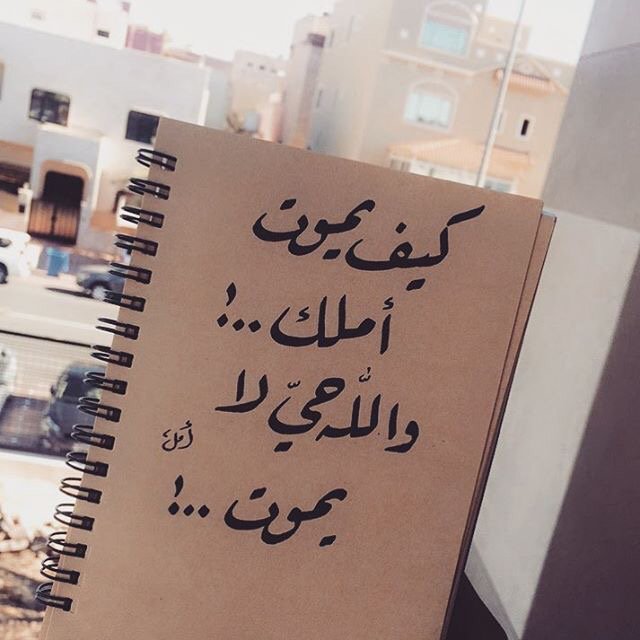 كيف يموت
أملك...!
والله حيّ لا
أمل
يموت...!